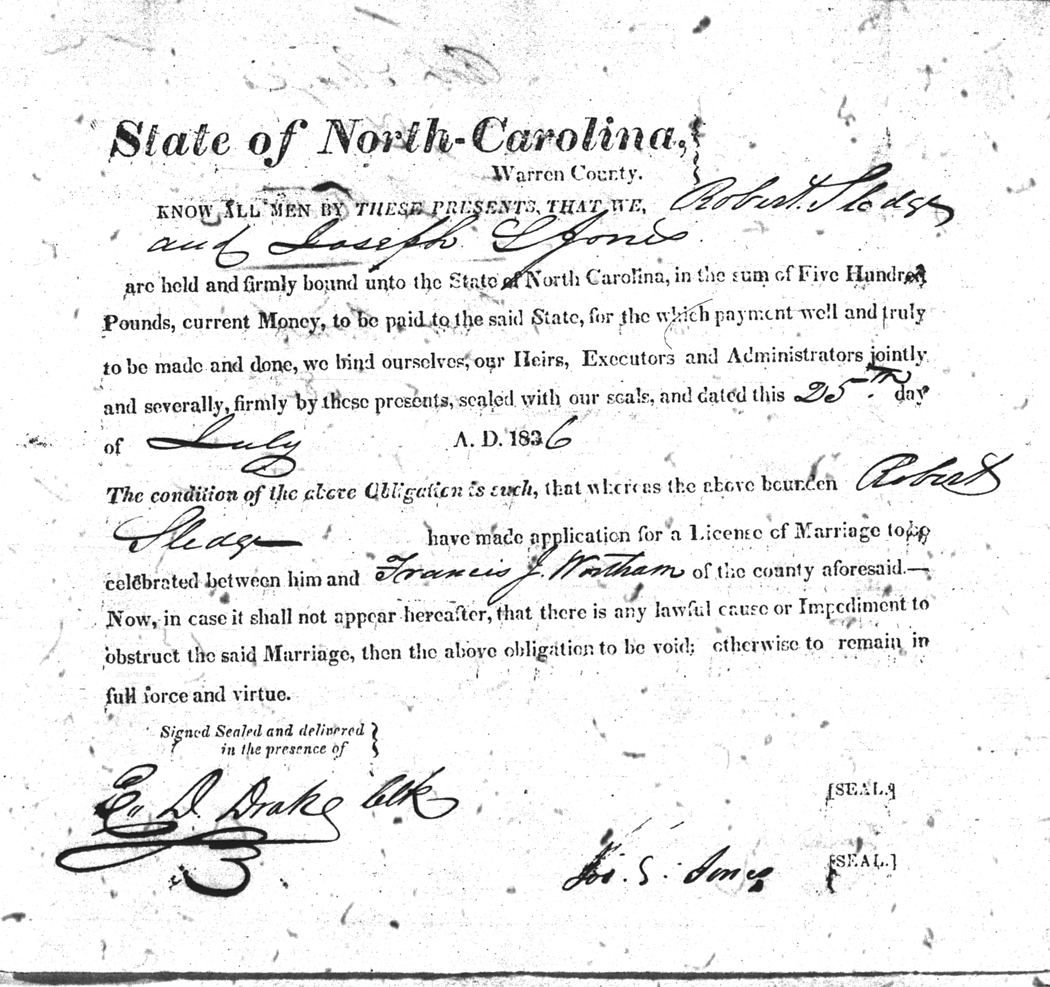 State of North-Carolina,
Warren County.
KNOW ALL MEN BY THESE PRESENTS, THAT WE, Robert Sledge
and Joseph S Jones
are held and firmly bound unto the State of North Carolina, in the sum of Five Hundred
Pounds, current Money, to be paid to the said State, for the which payment well and truly
to be made and done, we bind ourselves, our Heirs, Executors and Administrators jointly
and severally, firmly by these presents, sealed with our seals, and dated this 25th. day
of July A. D. 1836
The condition of the above Obligation is such, that whereas the above bounden Robert
Sledge have made application for a License of Marriage to be
celebrated between him and Francis J. Wortham of the county aforesaid.—
Now, in case it shall not appear hereafter, that there is any lawful cause or Impediment to
obstruct the said Marriage, then the above obligation to be void; otherwise to remain in
full force and virtue.
Signed Sealed and delivered
in the presence of
E. D. Drake Clk
[SEAL.]
Jos. S. Jones [SEAL.]